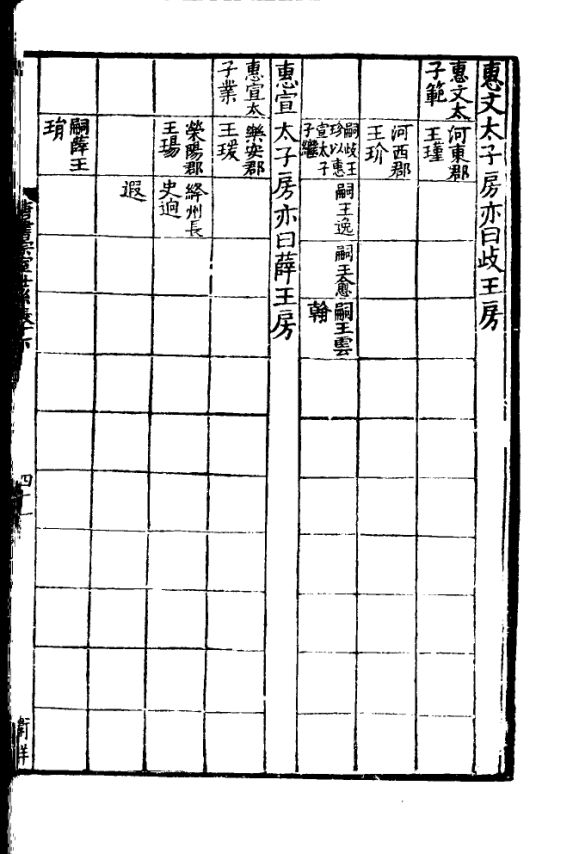 惠文太子房亦曰歧王房
惠文太子範
河東郡王瑾
河西郡王玠
嗣歧王珍以惠宣太子繼
嗣王逸
嗣王愈
嗣王雲翰
惠宣太子房亦曰薛王房
惠宣太子業
樂安郡王瑗
滎陽郡王瑒
絳州長史逈
遐
嗣薛王琄
唐書宗室世系表十下